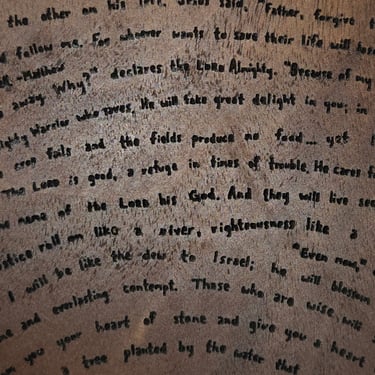 the other on his left. Jesus said, "Father, forgive t
d follow me. For whoever wants to save their life will lose
declares the LORD Almighty. "Because of my
away Why?"
ighty Warrior who saves. He will take great delight in you; in
crop fails and the fields produce no food... yet I
The LORD is good, a refuge in times of trouble. He cares f
e name of the LORD his God. And they will live sec
ustice roll on like a river, righteousness like a
"Even now,"
I will be like the dew to Israel; he will blossom
me and everlasting contempt. Those who are wise will
m you your heart of stone and give you a heart
a tree planted by the water that